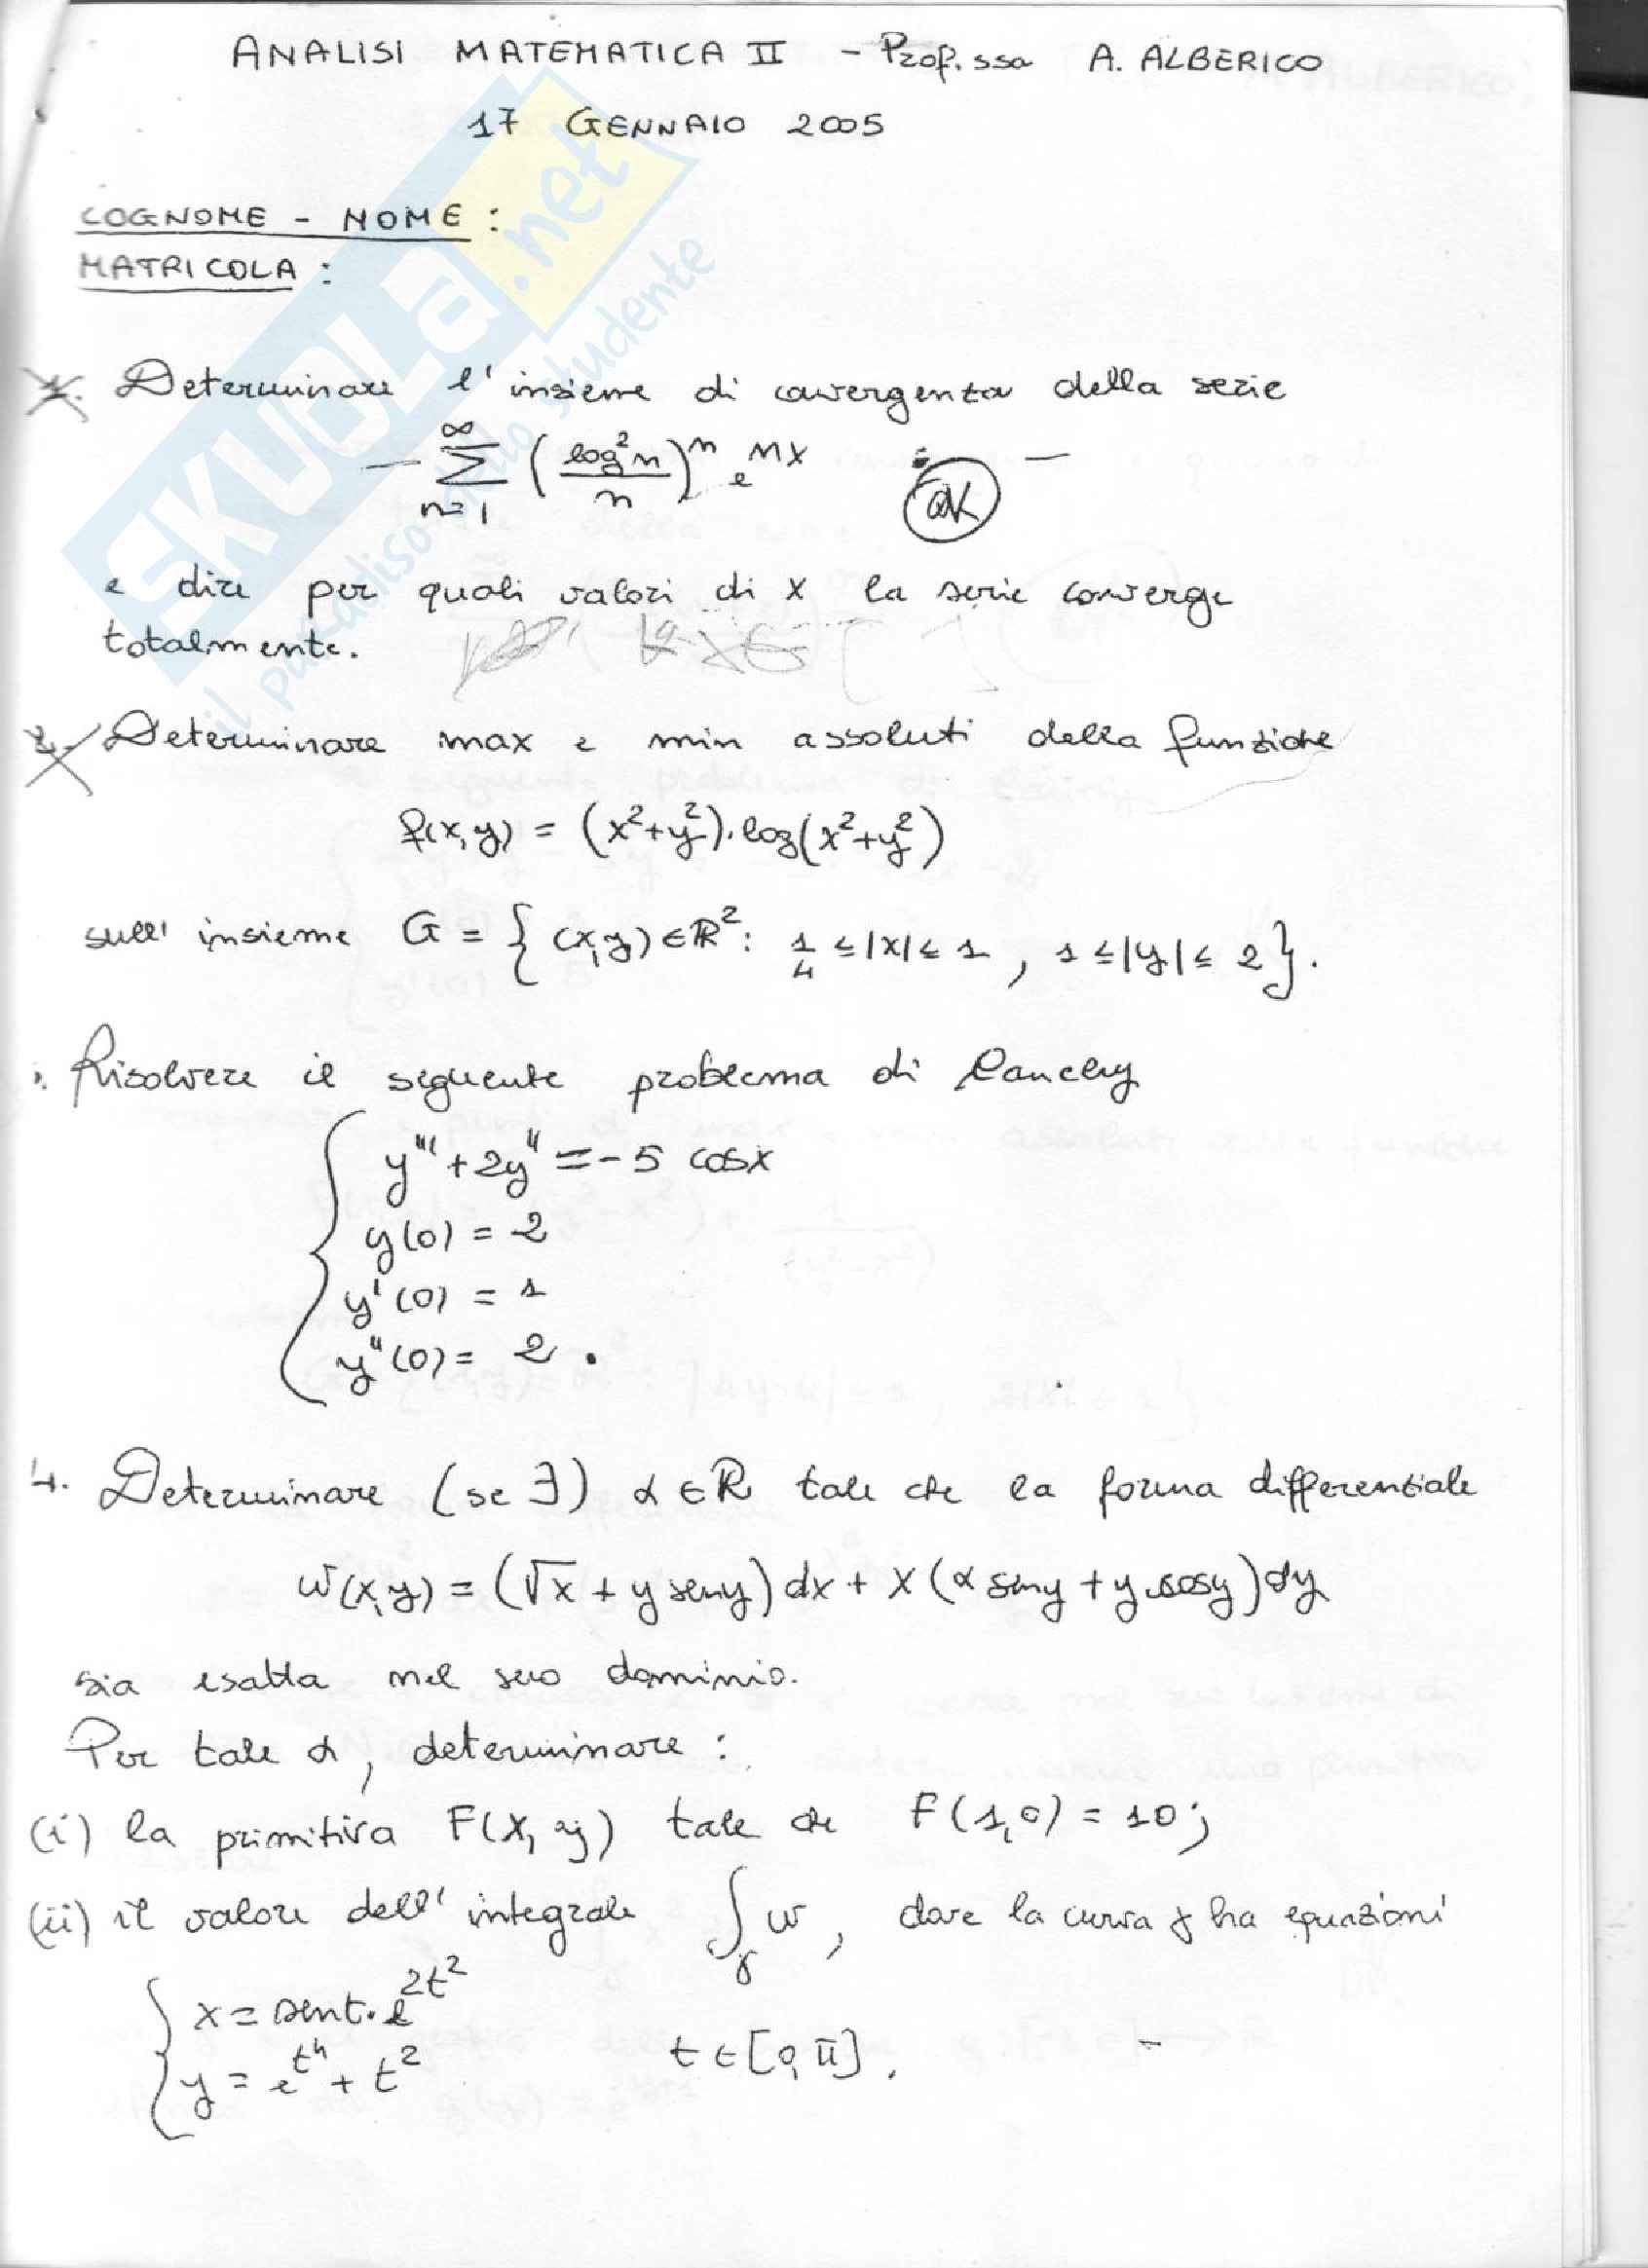 ANALISI MATEMATICA II - Prof.ssa A. ALBERICO
17 GENNAIO 2005
COGNOME - NOME :
MATRICOLA :
1. Determinare l'insieme di convergenza della serie
- ∑_{n=1}^{∞} (log²n / n)^n e^{nx} : -
OK
e dire per quali valori di x la serie converge
totalmente.
2. Determinare max e min assoluti della funzione
f(x,y) = (x²+y²)·log(x²+y²)
sull' insieme G = { (x,y) ∈ R² : 1/4 ≤ |x| ≤ 1 , 1 ≤ |y| ≤ 2 }.
Risolvere il seguente problema di Cauchy
y''' + 2y'' = -5 cosx
y(0) = 2
y'(0) = 1
y''(0) = 2 .
4. Determinare (se ∃) α ∈ R tale che la forma differenziale
w(x,y) = (√x + y seny) dx + x (α seny + y cosy) dy
sia esatta nel suo dominio.
Per tale α, determinare :
(i) la primitiva F(x,y) tale che F(1,0) = 10 ;
(ii) il valore dell' integrale ∫_γ w , dove la curva γ ha equazioni
x = sent·e^{2t²}
y = e^{t⁴} + t² t ∈ [0,π] . -
SKUOLA.net
il paradiso dello studente